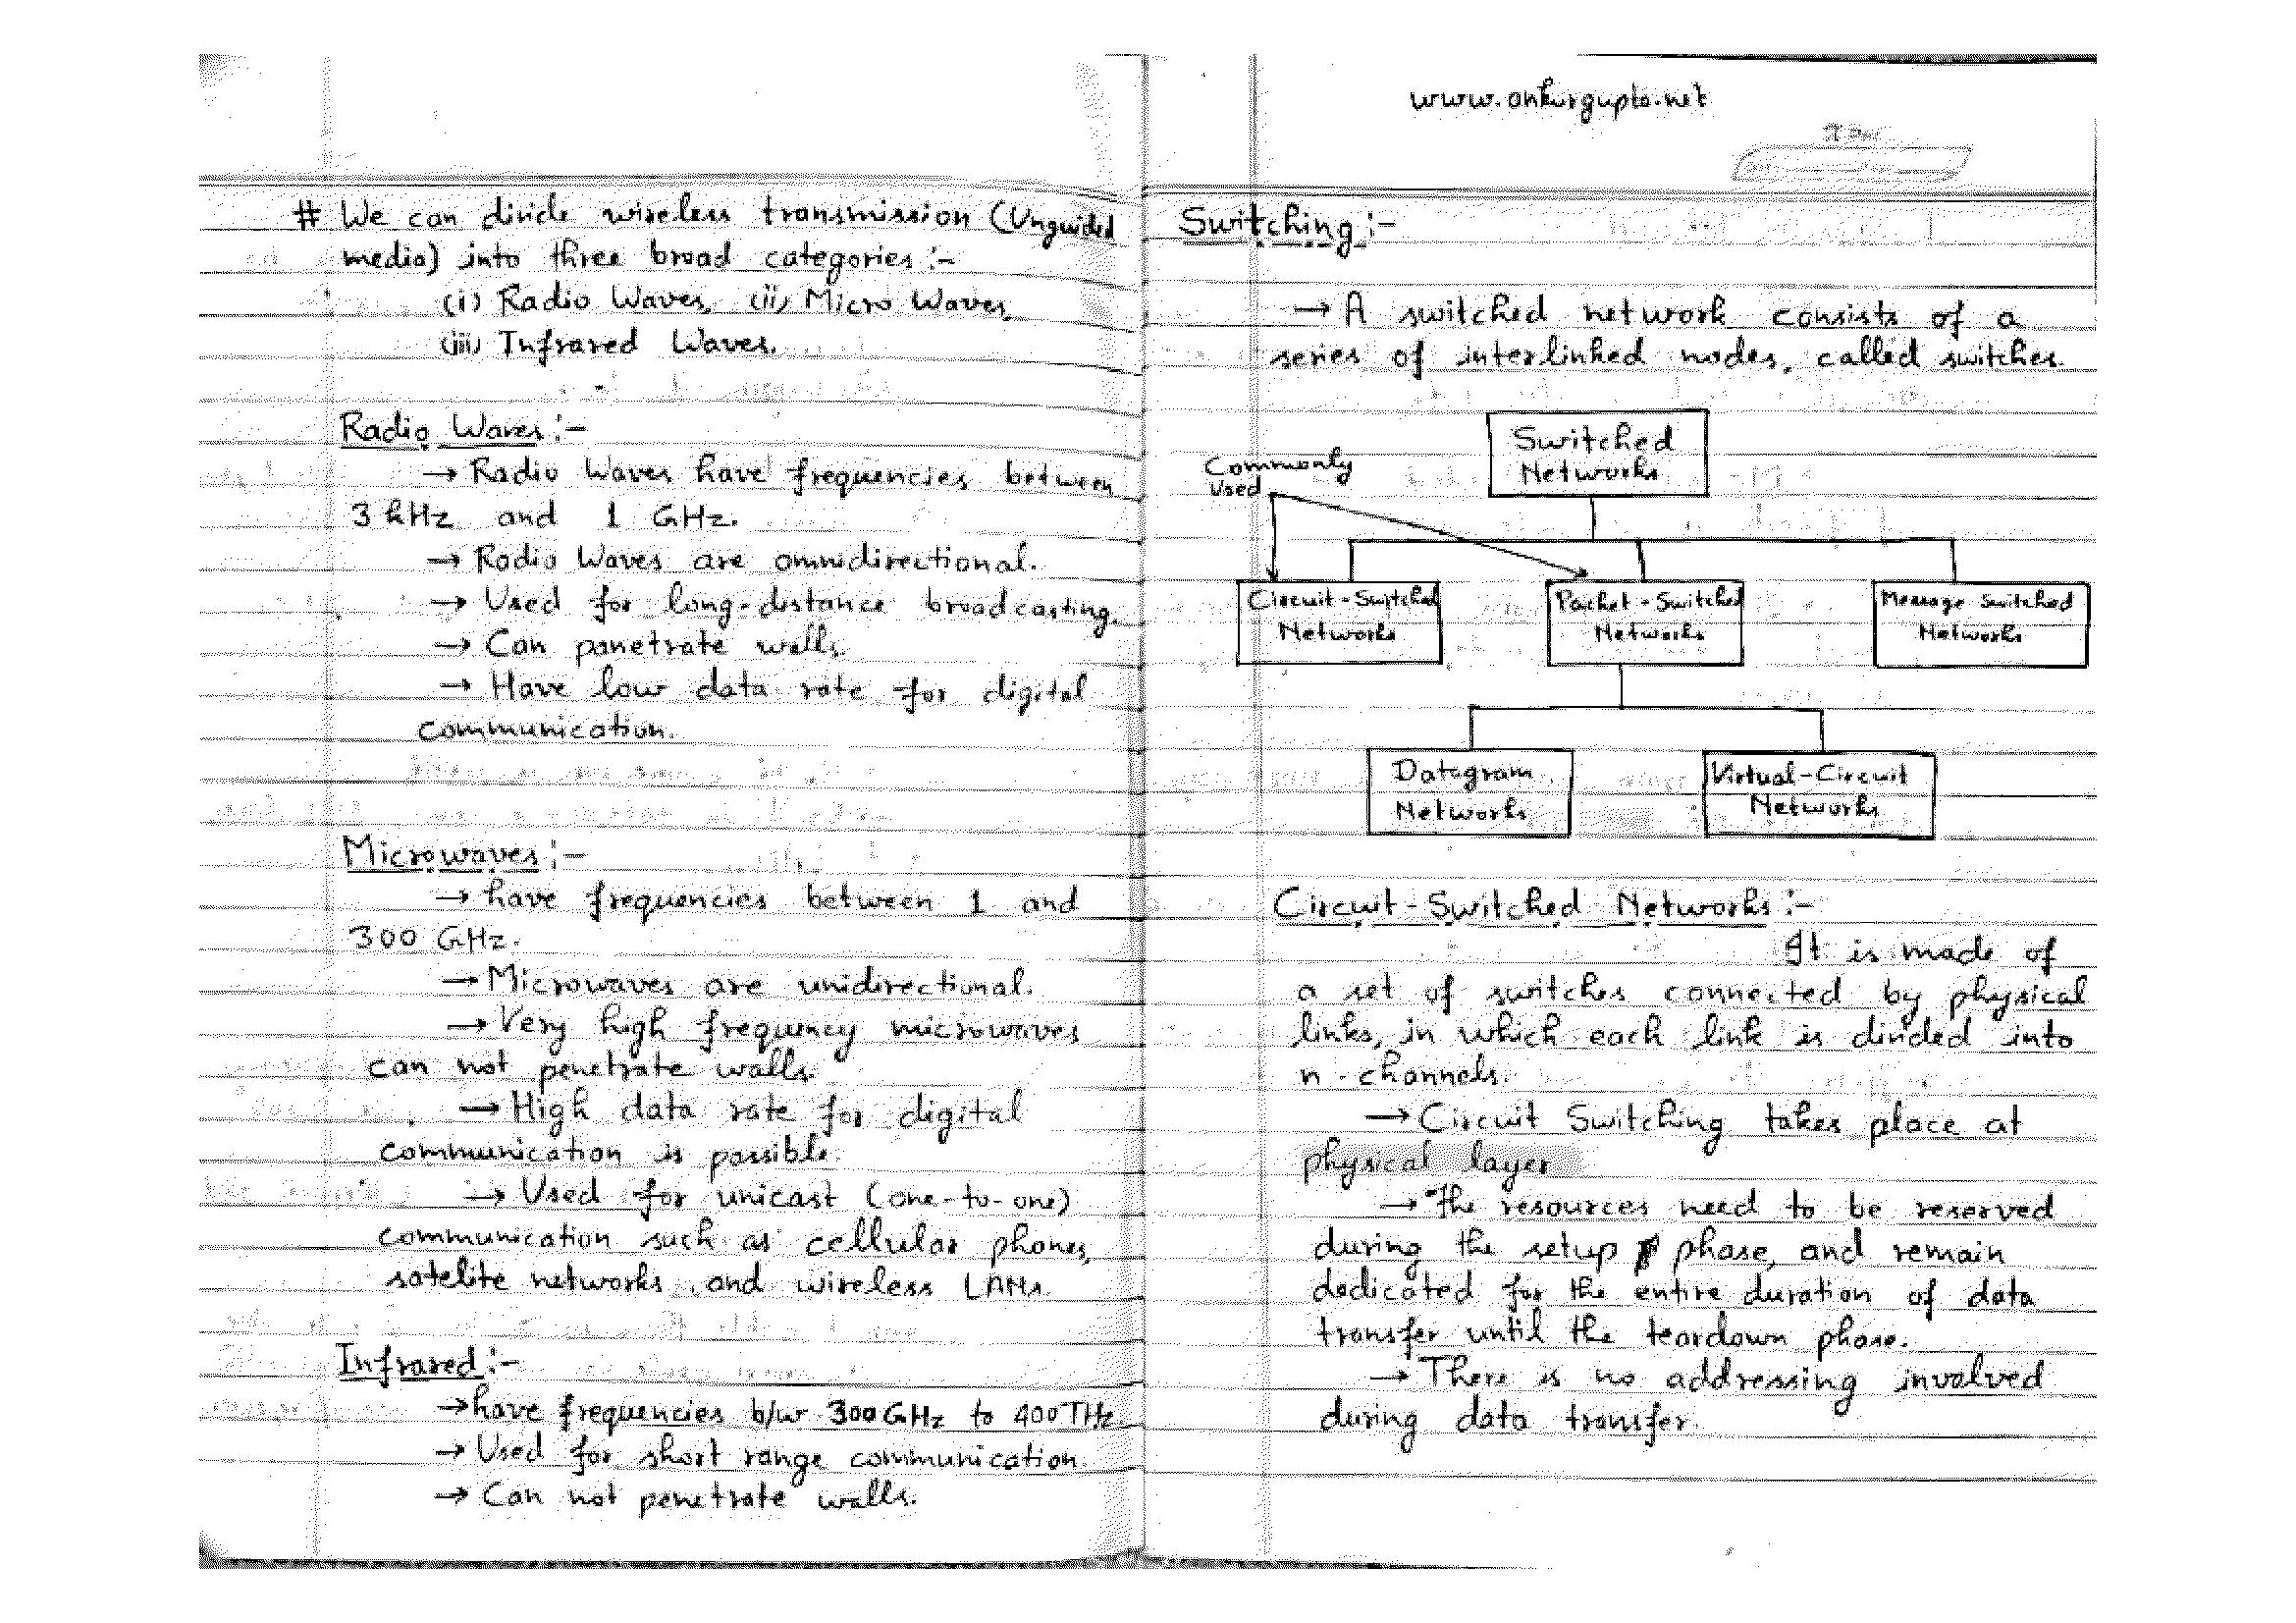 # We can divide wireless transmission (Unguided
media) into three broad categories :-
(i) Radio Waves, (ii) Micro Waves,
(iii) Infrared Waves.
Radio Waves :-
→ Radio Waves have frequencies between
3 kHz and 1 GHz.
→ Radio Waves are omnidirectional.
→ Used for long-distance broadcasting.
→ Can panetrate walls.
→ Have low data rate for digital
communication.
Microwaves :-
→ have frequencies between 1 and
300 GHz.
→ Microwaves are unidirectional.
→ Very high frequency microwaves
can not penetrate walls.
→ High data rate for digital
communication is possible.
→ Used for unicast (one-to-one)
communication such as cellular phones,
satelite networks, and wireless LANs.
Infrared :-
→ have frequencies b/w 300 GHz to 400 THz
→ Used for short range communication.
→ Can not penetrate walls.
www.ankurgupta.net
Switching :-
→ A switched network consists of a
series of interlinked nodes, called switches.
Switched
Networks
Commonly
Used
Circuit-Switched
Networks
Packet-Switched
Networks
Message Switched
Networks
Datagram
Networks
Virtual-Circuit
Networks
Circuit-Switched Networks :-
It is made of
a set of switches connected by physical
links, in which each link is divided into
n-channels.
→ Circuit Switching takes place at
physical layer
→ The resources need to be reserved
during the setup phase, and remain
dedicated for the entire duration of data
transfer until the teardown phase.
→ There is no addressing involved
during data transfer.